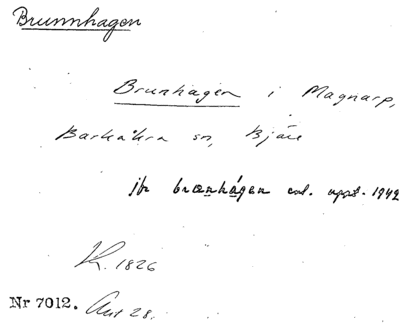 Brunnhagen
Brunhagen i Magnarp,
Barkåkra sn, Bjäre
brœnhágen uppt. 1942
K. 1826
Nr 7012. Ant 28.